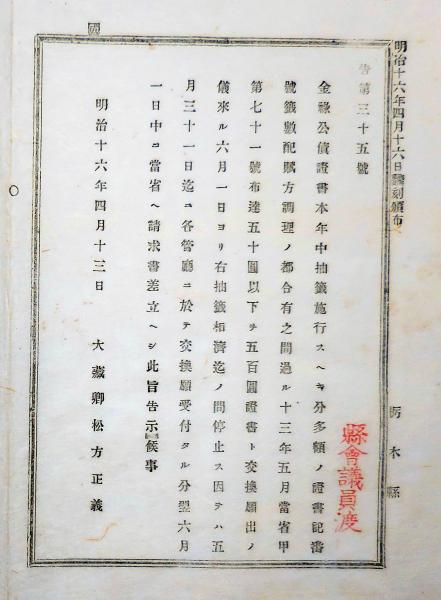 明治十六年四月十六日飜刻頒布
栃木縣
縣會議員渡
告第三十五號
金祿公債證書本年中抽籤施行スヘキ分多額ノ證書記番
號籤數配賦方調理ノ都合有之間過ル十三年五月當省甲
第七十一號布達五十圓以下ヲ五百圓證書ト交換願出ノ
儀來ル六月一日ヨリ右抽籤相濟迄ノ間停止ス因テハ五
月三十一日迄ニ各管廳ニ於テ交換願受付タル分翌六月
一日中ニ當省ヘ請求書差立ヘシ此旨告示候事
明治十六年四月十三日
大藏卿松方正義
國